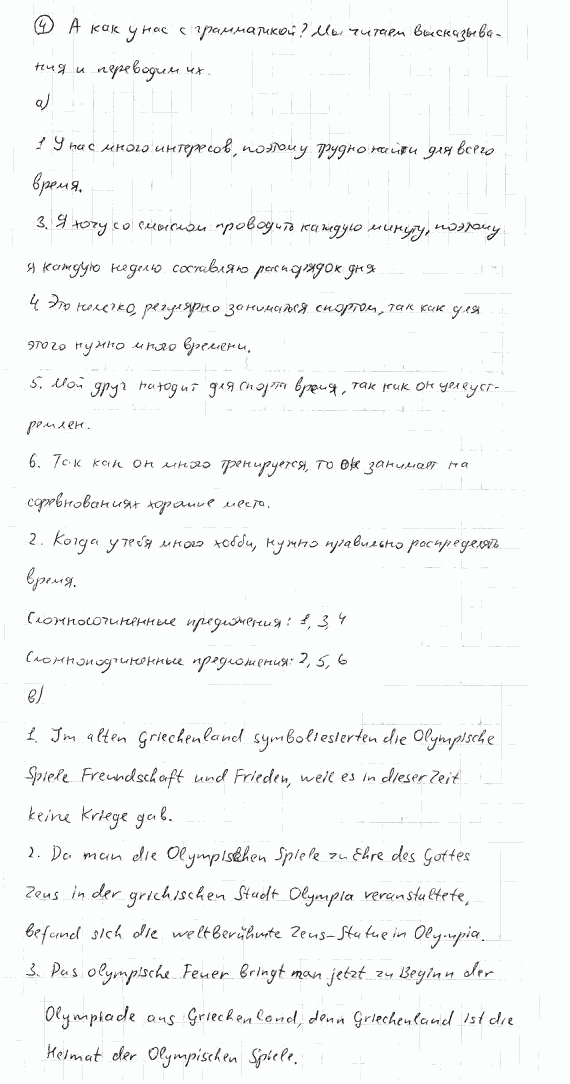 ④ А как у нас с грамматикой? Мы читаем высказыва-
ния и переводим их.
а)
1 У нас много интересов, поэтому трудно найти для всего
время.
3. Я хочу со смыслом проводить каждую минуту, поэтому
я каждую неделю составляю распорядок дня
4 Это нелегко, регулярно заниматься спортом, так как для
этого нужно много времени.
5. Мой друг находит для спорта время, так как он целеуст-
ремлен.
6. Так как он много тренируется, то он занимает на
соревнованиях хорошие место.
2. Когда у тебя много хобби, нужно правильно распределять
время.
Сложносочиненные предложения: 1, 3, 4
Сложноподчиненные предложения: 2, 5, 6
в)
1. Im alten Griechenland symboliesierten die Olympische
Spiele Freundschaft und Frieden, weil es in dieser Zeit
keine Kriege gab.
2. Da man die Olympischen Spiele zu Ehre des Gottes
Zeus in der grichischen Stadt Olympia veranstaltete,
befand sich die weltberühmte Zeus-Statue in Olympia.
3. Das olympische Feuer bringt man jetzt zu Beginn der
Olympiade aus Griechenland, denn Griechenland ist die
Heimat der Olympischen Spiele.